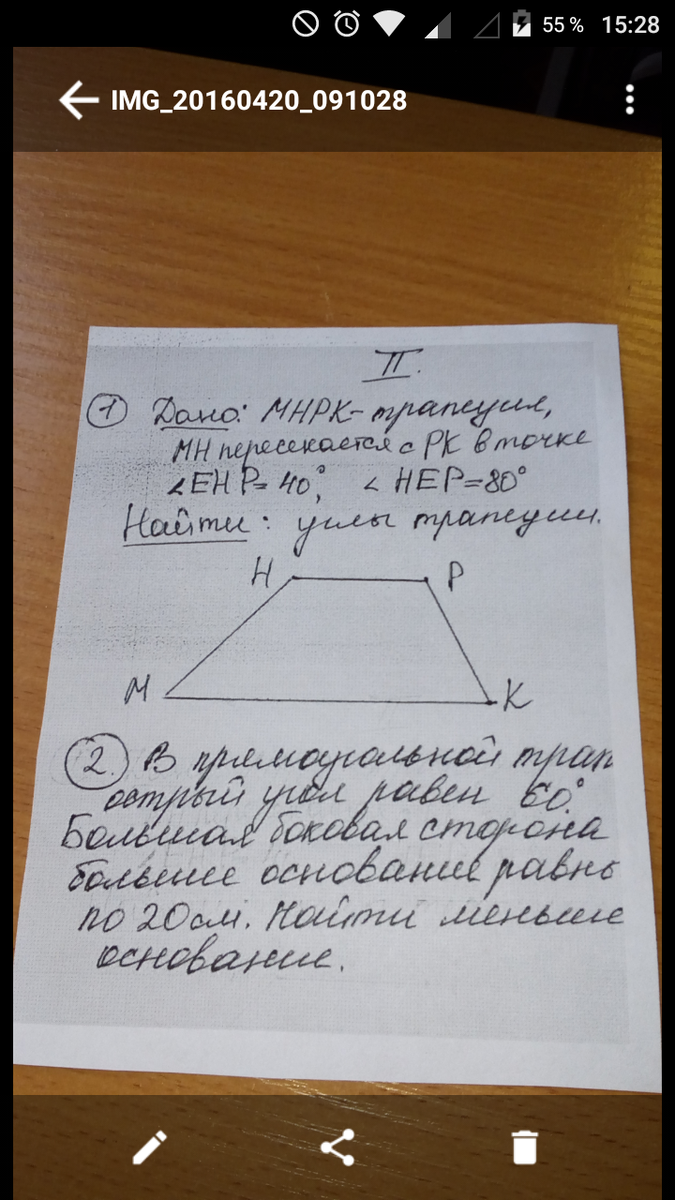 55 % 15:28
IMG_20160420_091028
II.
1 Дано: МНРК - трапеция,
МН пересекается с РК в точке
∠EHP = 40°, ∠HEP = 80°
Найти: углы трапеции.
Н Р
М К
2. В прямоугольной трап
острый угол равен 60°.
Большая боковая сторона
большее основание равны
по 20 см. Найти меньше
основание.